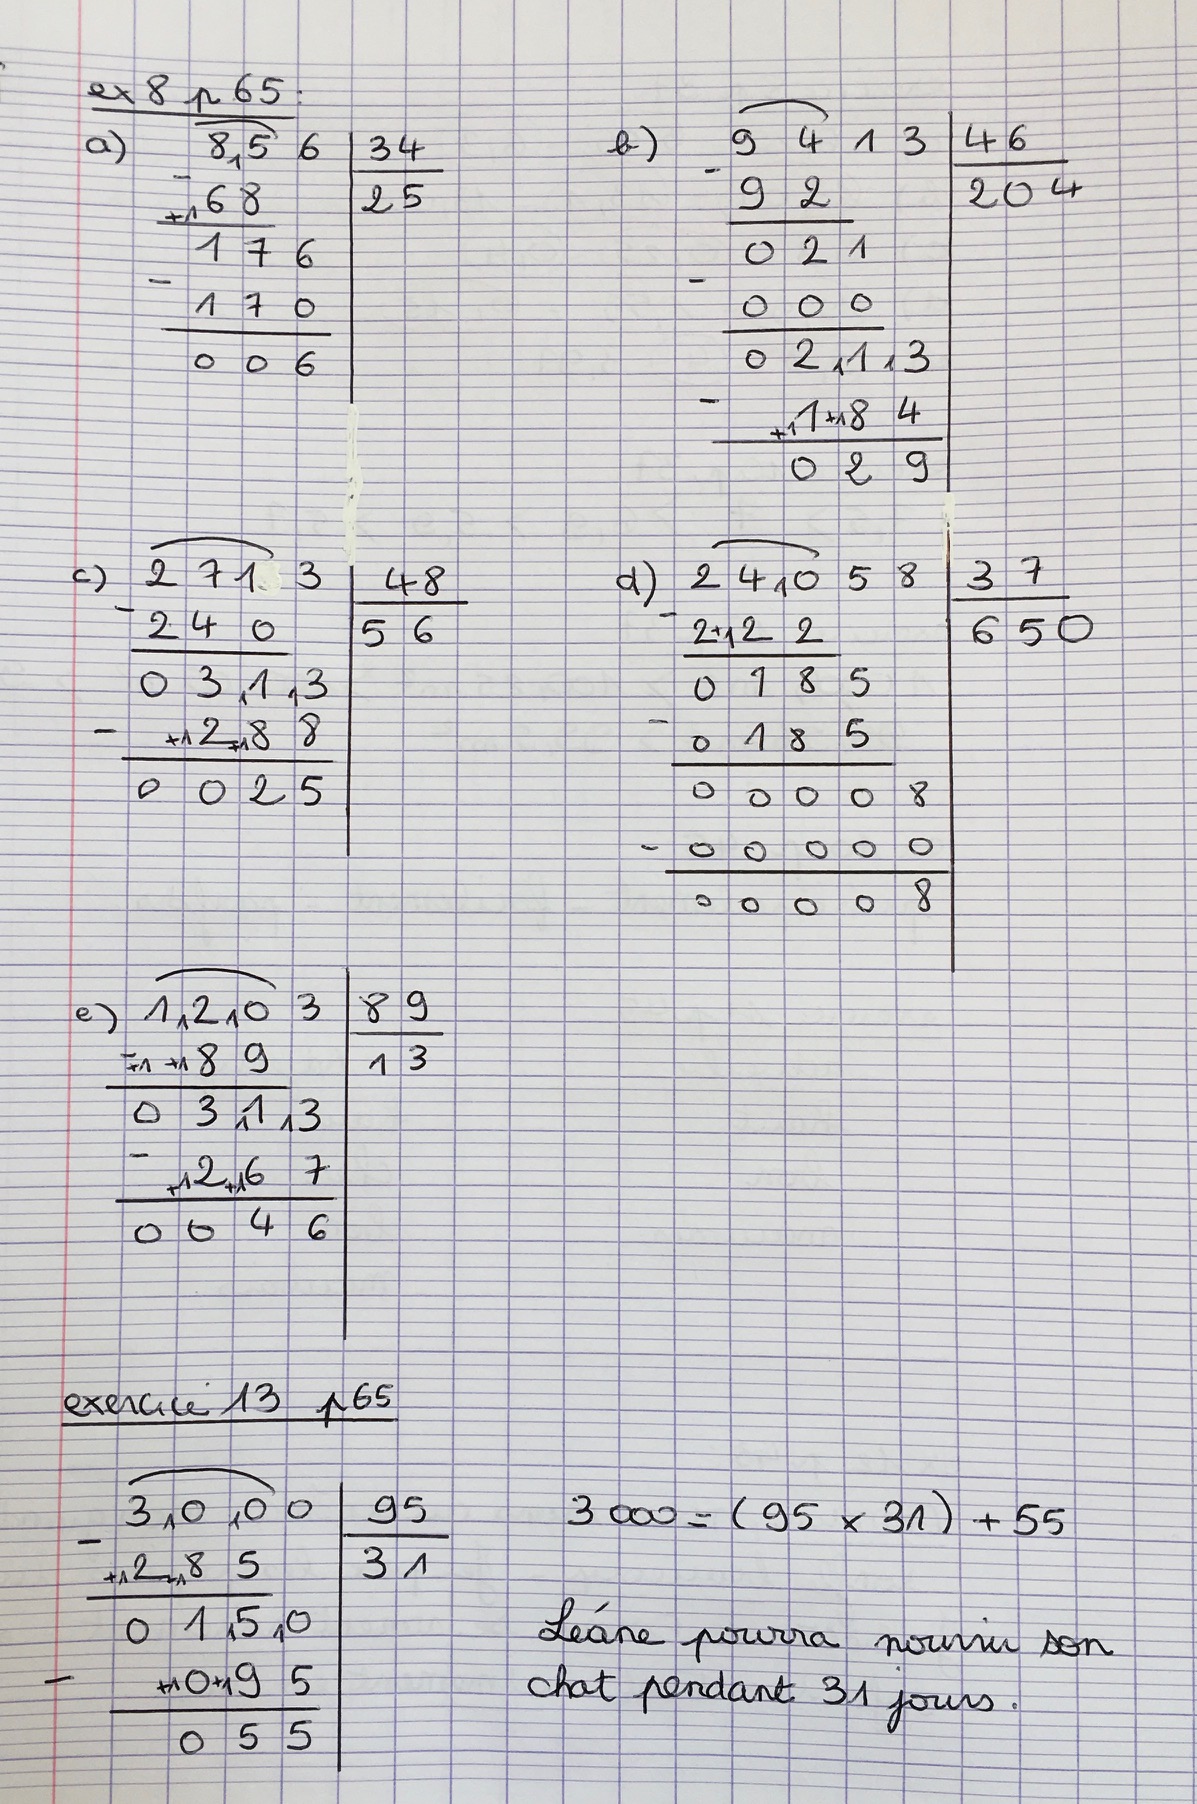 ex 8 p 65:
a) 8,56 | 34
- +1 68 | 25
176
- 170
006
b) 9413 | 46
- 92 | 204
021
- 000
02,1,3
- +1 1 +1 84
029
c) 2713 | 48
- 240 | 56
03,1,3
- +1 2 +1 88
0025
d) 24,058 | 37
- 2 +1 22 | 650
0185
- 0185
00008
- 00000
00008
e) 1,2,03 | 89
- +1 +1 89 | 13
03,1,3
- +1 2 +1 67
0046
exercice 13 p65
3,0,00 | 95
- +1 2 +1 85 | 31
01,5,0
- +1 0 +1 95
055
3 000 = (95 x 31) + 55
Léane pourra nourrir son
chat pendant 31 jours.